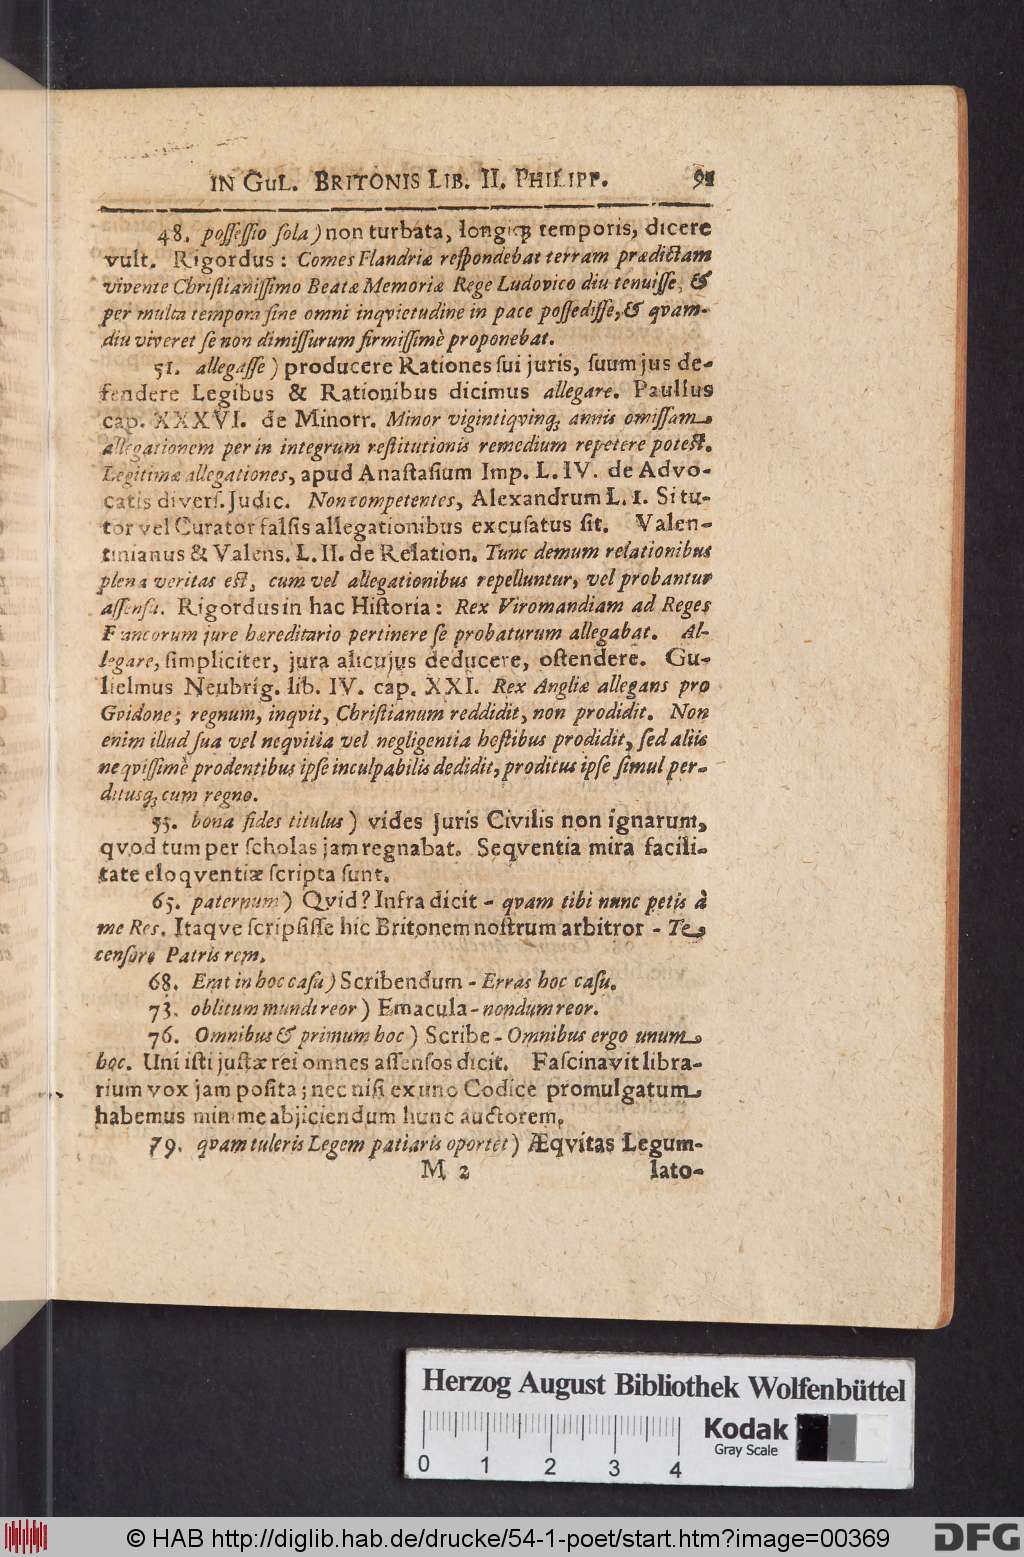 IN GUL. BRITONIS LIB. II. PHILIPP. 91
48. possessio sola) non turbata, longiq; temporis, dicere
vult. Rigordus: Comes Flandriæ respondebat terram prædictam
vivente Christianissimo Beatæ Memoriæ Rege Ludovico diu tenuisse, &
per multa tempora sine omni inqvietudine in pace possedisse, & qvam-
diu viveret se non dimissurum firmissimè proponebat.
51. allegasse) producere Rationes sui juris, suum jus de-
fendere Legibus & Rationibus dicimus allegare. Paullus
cap. XXXVI. de Minorr. Minor vigintiqvinq; annis omissam
allegationem per in integrum restitutionis remedium repetere potest.
Legitimæ allegationes, apud Anastasium Imp. L. IV. de Advo-
catis divers. Judic. Non competentes, Alexandrum L. I. Si tu-
tor vel Curator falsis allegationibus excusatus sit. Valen-
tinianus & Valens. L. II. de Relation. Tunc demum relationibus
plena veritas est, cum vel allegationibus repelluntur, vel probantur
assensu. Rigordus in hac Historia: Rex Viromandiam ad Reges
Francorum jure hæreditario pertinere se probaturum allegabat. Al-
legare, simpliciter, jura alicujus deducere, ostendere. Gu-
lielmus Neubrig. lib. IV. cap. XXI. Rex Angliæ allegans pro
Gvidone; regnum, inqvit, Christianum reddidit, non prodidit. Non
enim illud sua vel neqvitia vel negligentia hostibus prodidit, sed aliis
neqvissimè prodentibus ipse inculpabilis dedidit, proditus ipse simul per-
ditusq; cum regno.
55. bona fides titulus) vides Juris Civilis non ignarum,
qvod tum per scholas jam regnabat. Seqventia mira facili-
tate eloqventiæ scripta sunt.
65. paternum) Qvid? Infra dicit - qvam tibi nunc petis à
me Res. Itaqve scripsisse hic Britonem nostrum arbitror - Te
censore Patris rem.
68. Erat in hoc casu) Scribendum - Erras hoc casu.
73. oblitum mundi reor) Emacula - nondum reor.
76. Omnibus & primum hoc) Scribe - Omnibus ergo unum
hoc. Uni isti justæ rei omnes assensos dicit. Fascinavit libra-
rium vox jam posita; nec nisi ex uno Codice promulgatum
habemus minime abjiciendum hunc auctorem.
79. qvam tuleris Legem patiaris oportet) Æqvitas Legum-
M 2 lato-
Herzog August Bibliothek Wolfenbüttel
0 1 2 3 4
Kodak
Gray Scale
© HAB http://diglib.hab.de/drucke/54-1-poet/start.htm?image=00369
DFG